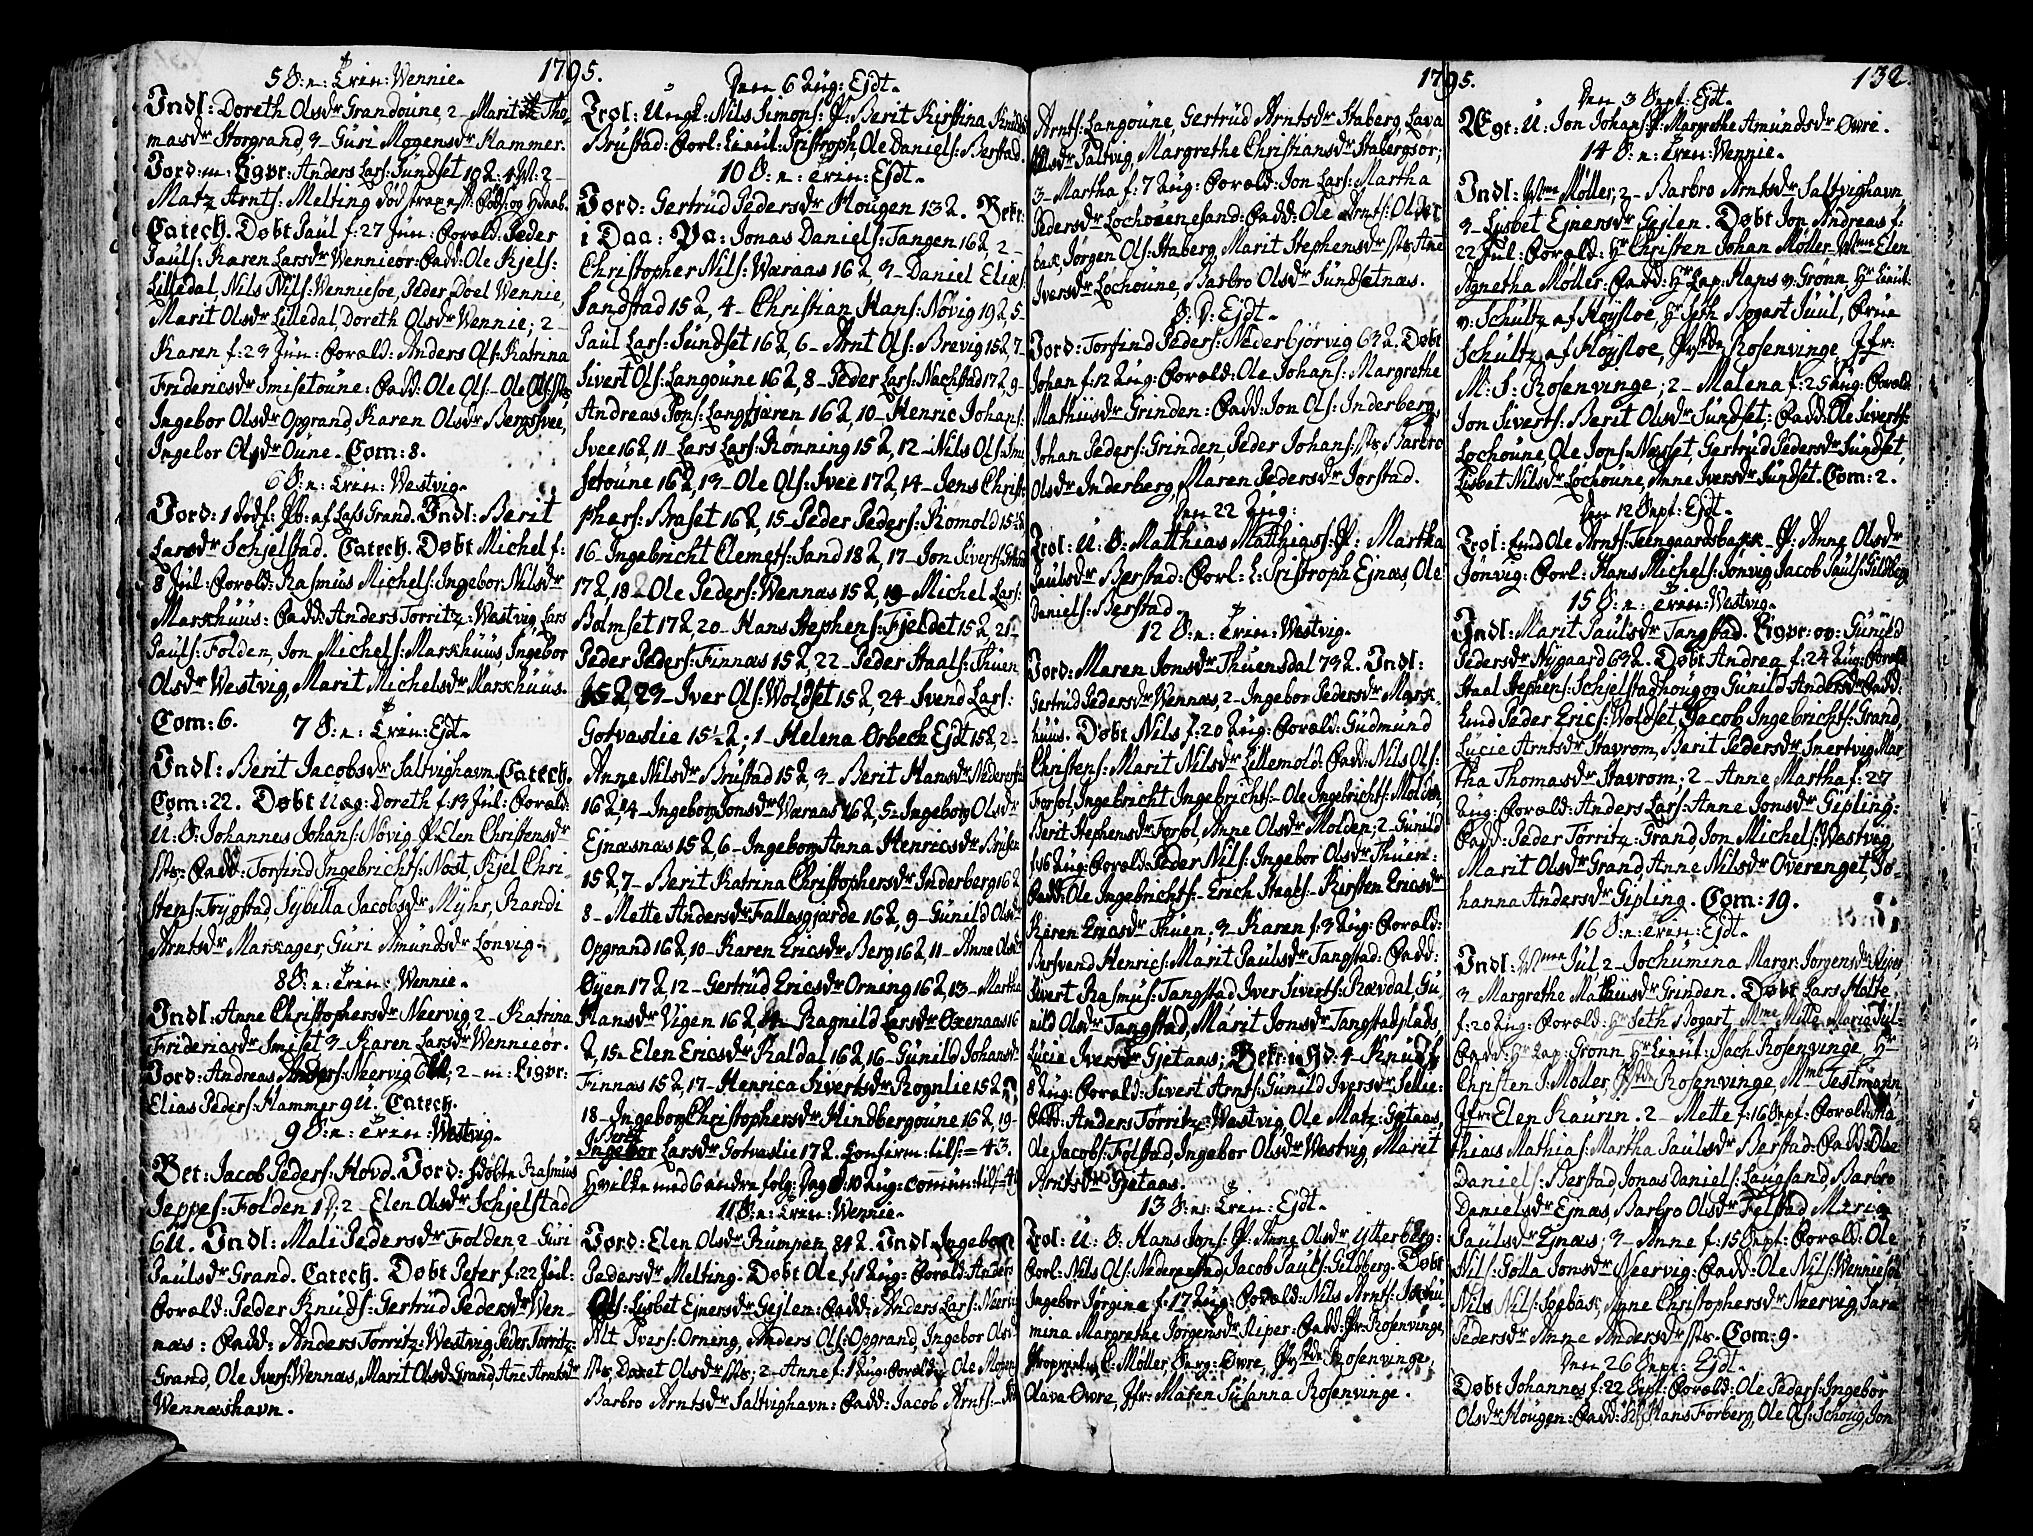 1795.
5 S: n: Trin: Wennie.
Indl: Doreth Olsdr Grandoune, 2 - Marit Tho-
masdr Storgrand, 3 - Guri Mogensdr Hammer.
Jord: m: Ligpr: Anders Lars: Sundset 102: 4 W: 2 -
Matz Arnts: Melting død strax og Hdaab.
Catech. Døbt Paul f: 27 Jun: Foræld: Peder
Pauls: Karen Larsdr Wennieør: Fadd: Ole Kjels:
Lilledal, Nils Nils: Wenniesoe, Peder Doel Wennie,
Marit Olsdr Lilledal, Doreth Olsdr Wennie; 2 -
Karen f: 23 Jun: Foræld: Anders Ols: Katrina
Fridericsdr Smisetoune: Fadd: Ole Ols - Ole
Ingebor Olsdr Opgrand, Karen Olsdr Bergsvee,
Ingebor Olsdr Oune. Com: 8.
6 S: n: Trin: Westvig.
Jord: 1 dødf: Pb: af Lass Grand. Indl: Berit
Larsdr Schjelstad. Catech. Døbt Michel f:
8 Jul: Foræld: Rasmus Michels: Ingebor Nilsdr
Markhuus: Fadd: Anders Torritz: Westvig, Lars
Pauls: Folden, Jon Michels: Markhuus, Ingebor
Olsdr Westvig, Marit Michelsdr Markhuus.
Com: 6. 7 S: n: Trin: Ejdt.
Indl: Berit Jacobsdr Saltvighavn. Catech.
Com: 22. Døbt Uæg: Doreth f: 13 Jul: Foræld:
U: S: Johannes Johans: Növig, P: Elen Christensdr
Fadd: Torfind Ingebrichts: Nost, Kjel Chri-
stens: Trygstad, Sybilla Jacobsdr Myhr, Randi
Arntsdr Markager, Guri Amundsdr Lonvig.
8 S: n: Trin: Wennie.
Indl: Anne Christophersdr Neervig 2 - Katrina
Fridericsdr Smiset 3 - Karen Larsdr Wennieør.
Jord: Andreas Anders: Neervig 2 - m: Ligpr:
Elias Peders: Hammer 9 U. Catech.
9 S: n: Trin: Westvig.
Bet: Jacob Peders: Hovd. Jord: Hdøbte Rasmus
Jeppes: Folden 1 D; 2 - Elen Olsdr Schjelstad
6 U. Indl: Mali Pedersdr Folden, 2 - Guri
Paulsdr Grand. Catech. Døbt Peter f: 22 Jul:
Foræld: Peder Knuds: Gertrud Pedersdr Wen-
næs: Fadd: Anders Torritz: Westvig, Peder Torritz:
Grand, Ole Ivers: Wennæs, Marit Olsdr Grand, Ane Arntsdr
Wennæshavn.
Den 6 Aug: Ejdt.
Trol: Ungk: Nils Simons: P: Berit Kirstina Knudsdr
Brustad: Forl: Lieut: Tristroph, Ole Daniels: Berstad.
10 S: n: Trin: Ejdt.
Jord: Gertrud Pedersdr Hougen 132. Bekr:
i Daa: Pa: Jonas Daniels: Tangen 162, 2 -
Christopher Nils: Waraas 162, 3 - Daniel Elias:
Sandstad 152, 4 - Christian Hans: Növig 192, 5 -
Paul Lars: Sundset 162, 6 - Arnt Ols: Brevig 152, 7 -
Sivert Ols: Langoune 162, 8 - Peder Lars: Nachstad 172, 9 -
Andreas Jons: Langfjæren 162, 10 - Henric Johans:
Svee 162, 11 - Lars Lars: Rønning 152, 12 - Nils Ols: Smi
setoune 162, 13 - Ole Ols: Svee 172, 14 - Jens Christ:
phers: Braset 162, 15 - Peder Peders: Romold 15½2
16 - Ingebricht Clemets: Sand 182, 17 - Jon Siverts:
172, 18 - Ole Peders: Wennæs 152, 19 - Michel Lars:
Bolmset 172, 20 - Hans Stephens: Fjeldet 152, 21 -
Peder Peders: Finnæs 152, 22 - Peder Staals: Thuen
152, 23 - Iver Ols: Woldset 152, 24 - Svend Lars:
Gotvaslie 15½2; 1 - Helena Orbech Ejdt 152, 2 -
Anne Nilsdr Brustad 152, 3 - Berit Hansdr
162, 4 - Ingebor Jonsdr Waraas 162, 5 - Ingeborg Olsdr
Ejnæsnæs 152, 6 - Ingebor Anna Henricsdr
152, 7 - Berit Katrina Christophersdr Inderberg 162
8 - Mette Andersdr Fallasgjærde 162, 9 - Gunild Olsdr
Opgrand 162, 10 - Karen Ericsdr Berg 162, 11 - Anne Olsdr
Øyen 172, 12 - Gertrud Ericsdr Orning 162, 13 - Martha
Hansdr Vigen 162, 14 - Ragnild Larsdr Oxenaas 16
2, 15 - Elen Ericsdr Kaldal 162, 16 - Gunild Johansdr
Finnas 152, 17 - Henrica Sivertsdr Rognlie 152,
18 - Ingebor Christophersdr Hindbergoune 162, 19 -
Berit
Ingebor Larsdr Gotvaslie 172. Konferm: tils: = 43.
Hvilke med 6 andre folg: Dag 10 Aug: commun: tils =
11 S: n: Trin: Wennie.
Jord: Elen Olsdr Rumpen, 842. Indl: Ingebor
Pedersdr Melting. Døbt Ole f: 1 Aug: Foræld: Anders
Ols: Lisbet Ejnersdr Gejlen: Fadd: Anders Lars: Neervig
Alt Ivers: Orneng, Anders Ols: Opgrand, Ingebor Olsdr
Doret Olsdr 2 - Anne f: 1 Aug: Foræld: Ole Mogens
Barbro Arntsdr Saltvighavn: Fadd: Jacob Arnts:
1795.
Arnts: Langoune, Gertrud Arntsdr Staberg, Lava
Olsdr Saltvig, Margrethe Christiansdr Stabergsør;
3 - Martha f: 7 Aug: Foræld: Jon Lars: Martha
Pedersdr Lochounesand: Fadd: Ole Arnts:
Jørgen Ols: Staberg, Marit Stephensdr Ane
Iversdr Lochoune, Barbro Olsdr Sundsetnæs.
S: D: Ejdt.
Jord: Torfind Peders: Nederbjörvig 632. Døbt
Johan f: 12 Aug: Foræld: Ole Johans: Margrethe
Mathiisdr Grinden: Fadd: Jon Ols: Inderberg,
Johan Peders: Grinden, Peder Johans: Barbro
Olsdr Inderberg, Maren Pedersdr Jorstad.
Den 22 Aug:
Trol: U: S: Matthias Matthias: P: Martha
Paulsdr Berstad: Forl: L: Tristroph Ejnæs, Ole
Daniels: Berstad.
12 S: n: Trin: Westvig.
Jord: Maren Jonsdr Thuensdal 732. Indl:
Gertrud Pedersdr Wennæs, 2 - Ingebor Pedersdr Mark-
huus. Døbt Nils f: 20 Aug: Foræld: Gudmund
Christens: Marit Nilsdr Lillemold: Fadd: Nils Ols:
Forsol, Ingebricht Ingebrichts: Ole Ingebrichts: Molden,
Berit Stephensdr Forsol, Anne Olsdr Molden; 2 - Gunild
f: 16 Aug: Foræld: Peder Nils: Ingebor Olsdr Thuen:
Fadd: Ole Ingebrichts: Erich Staals: Kirsten Ericsdr
Karen Ericsdr Thuen; 3 - Karen f: 3 Aug: Foræld:
Bersvend Henrics: Marit Paulsdr Tangstad: Fadd:
Sivert Rasmus: Tangstad, Iver Siverts: Rævdal, Gu
nild Olsdr Tangstad, Marit Jonsdr Tangstadplads,
Lucie Iversdr Gjetaas; Bekr: i Hd: 4 - Knud f:
8 Aug: Foræld: Sivert Arnts: Gunild Iversdr Sellie:
Fadd: Anders Torritz: Westvig, Ole Matz: Gjetaas,
Ole Jacobs: Folstad, Ingebor Olsdr Westvig, Marit
Arntsdr Gjetaas.
13 S: n: Trin: Ejdt.
Trol: U: S: Hans Jons: P: Anne Olsdr Ytterberg:
Forl: Nils Ols: Jacob Pauls: Gildberg. Døbt
Ingebor Jørgine f: 17 Aug: Foræld: Nils Arnts: Jochu
mina Margrethe Jørgensdr Riper: Fadd: Pr: Rosenvinge,
Møller, Øvre, Rosenvinge,
Olava Øvre, Jfr: Maren Susanna Rosenvinge.
132.
Den 3 Sept: Ejdt.
Ægt: U: Jon Johans: P: Margrethe Amundsdr Øvre.
14 S: n: Trin: Wennie.
Indl: Mme Møller, 2 - Barbro Arntsdr Saltvighavn
3 - Lisbet Ejnersdr Gejlen. Døbt Jon Andreas f:
22 Jul: Foræld: Hr Christen Johan Møller, Mme Elen
Agnetha Møller: Fadd: Hr Cap: Hans v: Grønn, Hr Lieut:
v: Schultz af Høysloe, Hr Seth Bogart Juul, Frue
Schultz af Høysloe, Rosenvinge, Jfr:
M: S: Rosenvinge; 2 - Malena f: 25 Aug: Foræld:
Jon Siverts: Berit Olsdr Sundset: Fadd: Ole Siverts:
Lochoune, Ole Jons: Nærset, Gertrud Pedersdr Sundset,
Lisbet Nilsdr Lochoune, Anne Iversdr Sundset. Com: 2.
Den 12 Sept: Ejdt.
Trol: Ole Arnts: P: Anne Olsdr
Jonvig: Forl: Hans Michels: Jonvig, Jacob Pauls: Gildberg
15 S: n: Trin: Westvig.
Indl: Marit Paulsdr Tangstad. Ligpr: ov: Gunild
Pedersdr Nygaard 632. Døbt Andrea f: 24 Aug: Foræld
Staal Stephens: Schjelstadhoug og Gunild Andersdr Fadd:
Peder Erics: Woldset, Jacob Ingebrichts: Grand,
Lucie Arntsdr Stavrom, Berit Pedersdr Snertvig, Mar
tha Thomasdr Stavrom; 2 - Anne Martha f: 27
Aug: Foræld: Anders Lars: Anne Jonsdr Gipling:
Fadd: Peder Torritz: Grand, Jon Michels: Westvig,
Marit Olsdr Grand, Anne Nilsdr Overenget, Jo-
hanna Andersdr Gipling. Com: 19.
16 S: n: Trin: Ejdt.
Indl: Mme Jul 2 - Jochumina Margr: Jørgensdr Riper
3 - Margrethe Mathiisdr Grinden. Døbt Lars Holte
f: 20 Aug: Foræld: Hr Seth Bogart, Mme Mille Maria Jul:
Fadd: Hr Cap: Grønn, Hr Lieut: Rosenvinge, Hr
Christen J: Møller, Rosenvinge, Mme Testmann
Jfr: Elen Kaurin. 2 - Mette f: 16 Sept: Foræld: Ma
thias Mathias: Martha Paulsdr Berstad: Fadd: Ole
Daniels: Berstad, Jonas Daniels: Laugsand, Barbro
Danielsdr Ejnæs, Barbro Olsdr Folstad, Maria
Paulsdr Ejnæs; 3 - Anne f: 15 Sept: Foræld: Ole
Nils: Golla Jonsdr Neervig: Fadd: Ole Nils: Wenniesoe
Nils Nils: Søebak, Anne Christophersdr Neervig, Sara
Pedersdr Anne Andersdr Com: 9.
Den 26 Sept: Ejdt.
Døbt Johannes f: 22 Sept: Foræld: Ole Peders: Ingebor
Olsdr Hougen: Fadd: Hans Forberg, Ole Ols: Schoug, Jon